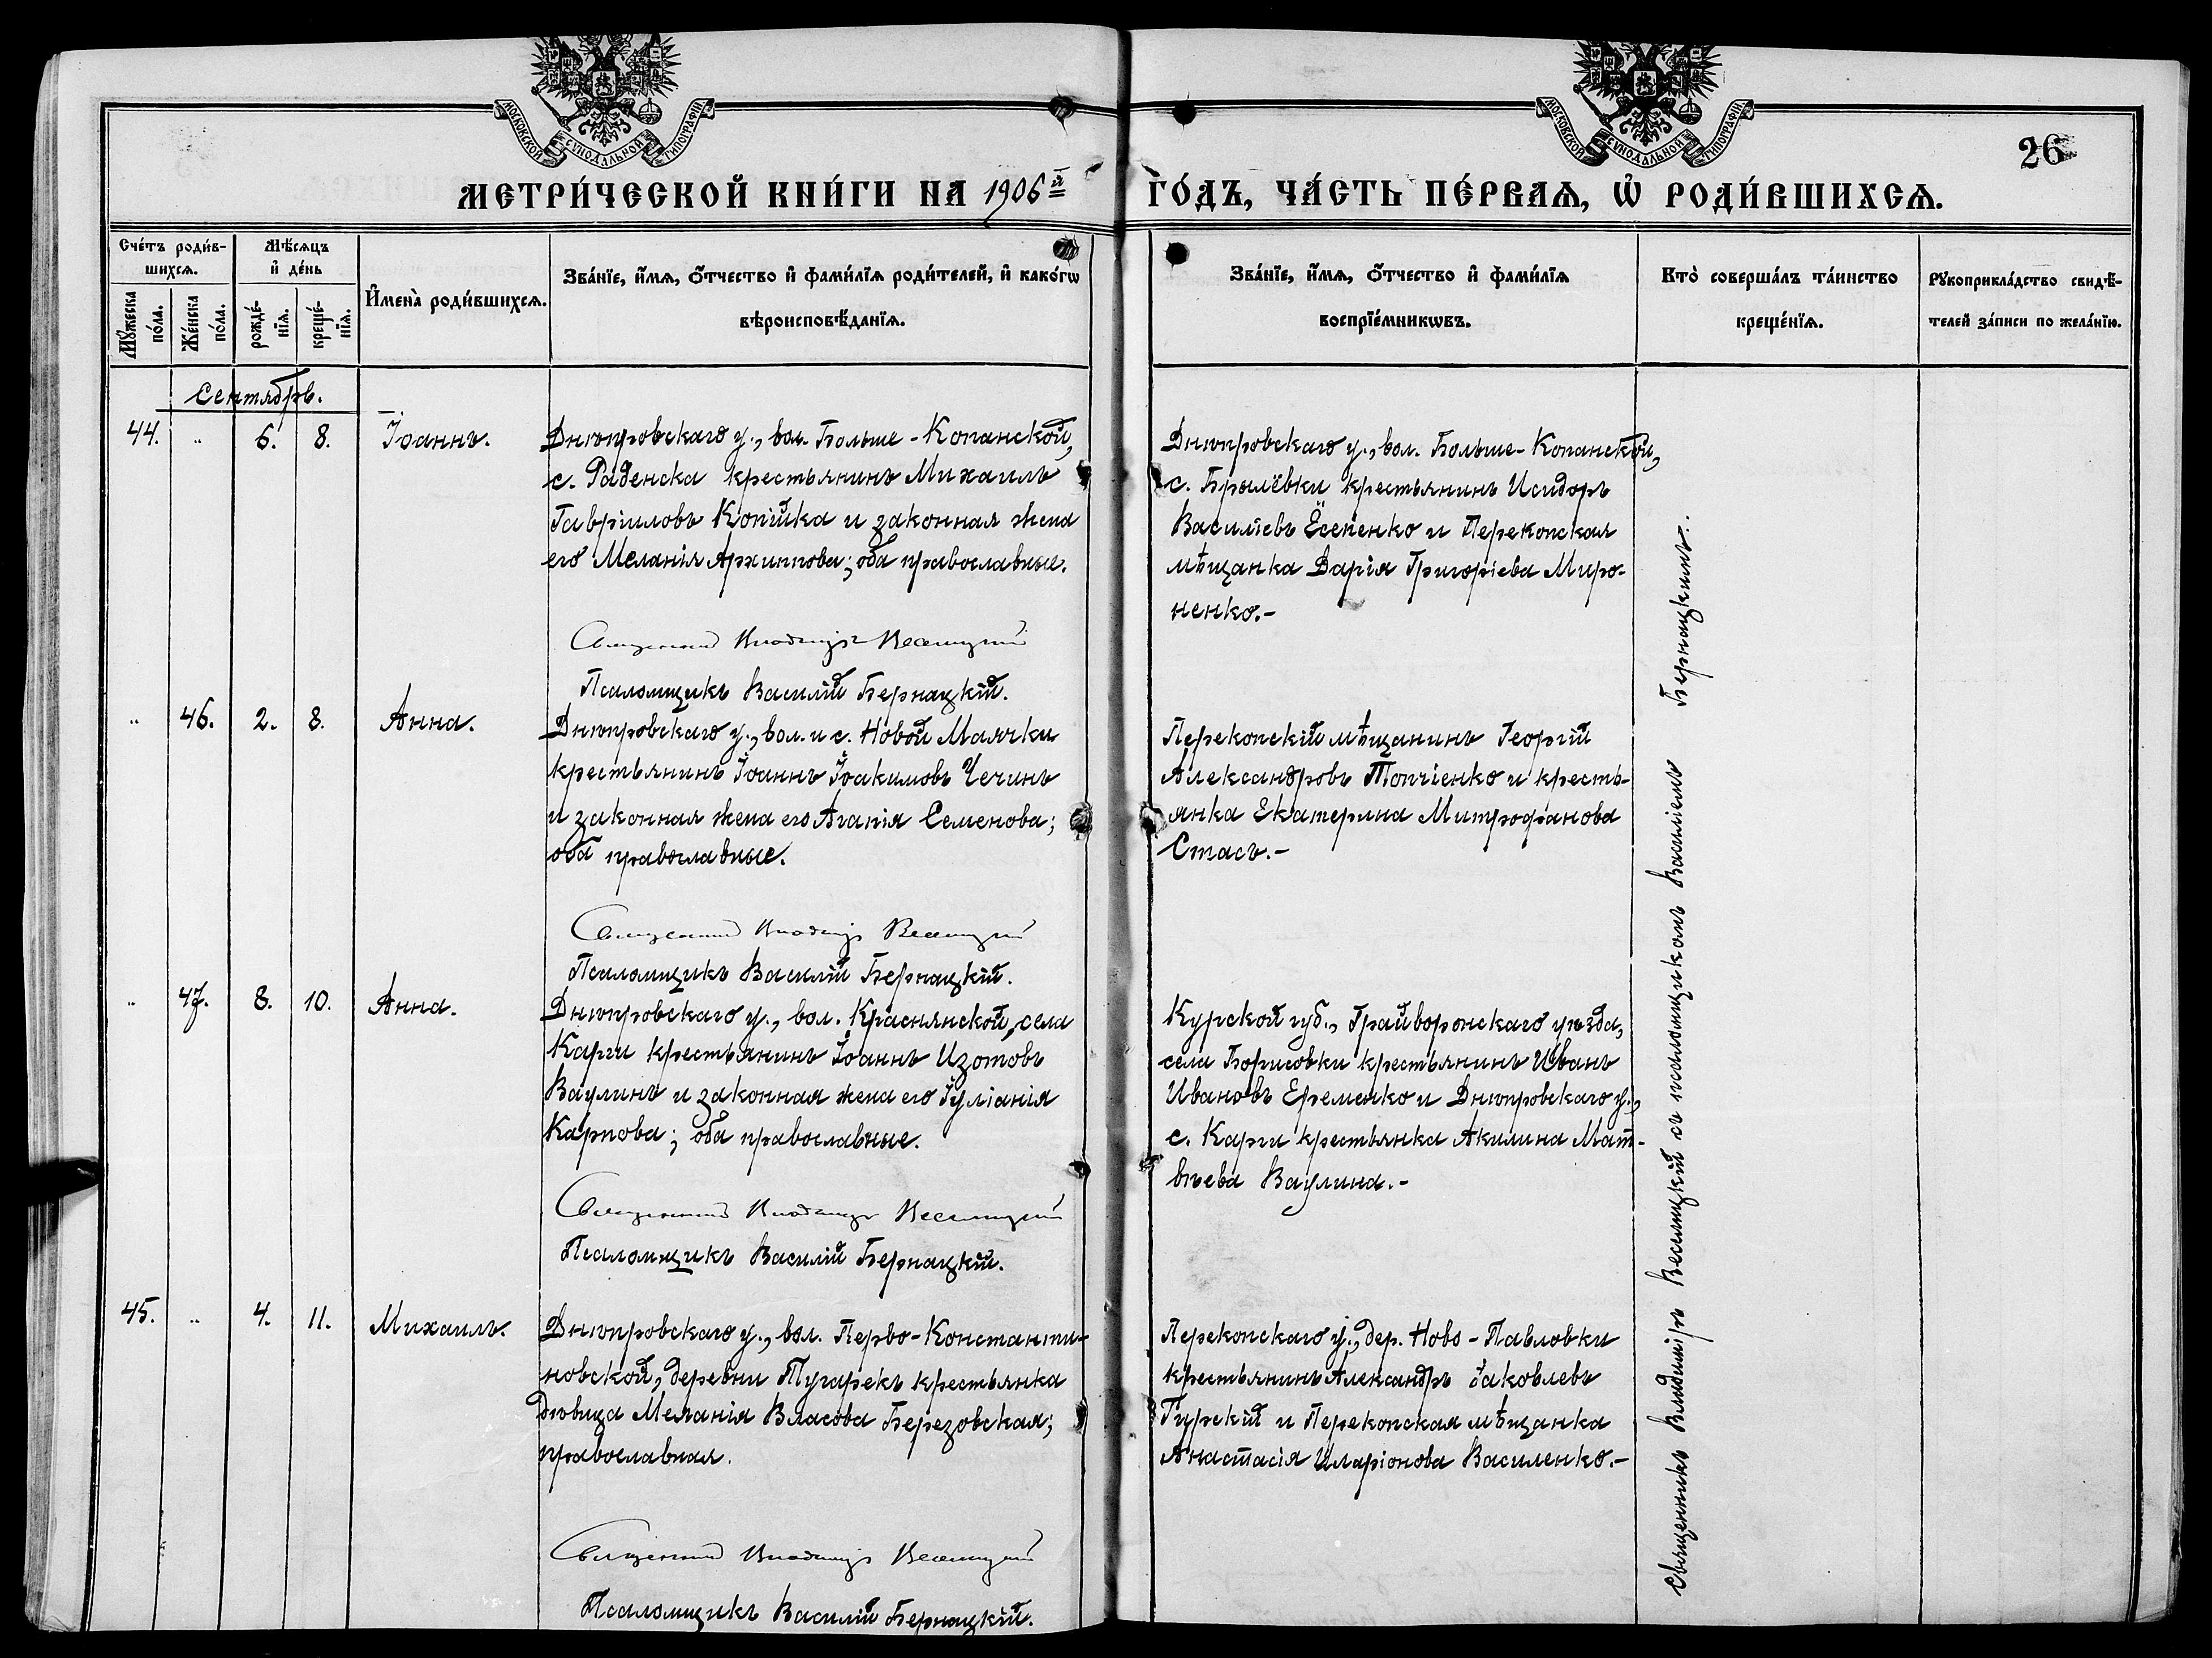 МОСКОВСКОЙ СѴНОДАЛЬНОЙ ТИПОГРАФІИ
МОСКОВСКОЙ СѴНОДАЛЬНОЙ ТИПОГРАФІИ
26
МЕТРИ́ЧЕСКОЙ КНИ́ГИ НА 1906й
ГО́ДЪ, ЧА́СТЬ ПЕ́РВАѦ, Ѡ҆ РОДИ́ВШИХСѦ.
Сче́тъ роди́в-
шихсѧ.
Мѣ́сяцъ
и҆ де́нь
Мꙋ́жеска по́ла.
Же́нска по́ла.
рожде́-нїѧ.
креще́-нїѧ.
И҆мена̀ роди́вшихсѧ.
Зва́нїе, и҆́мѧ, ѻ҆́тчество и҆ фами́лїѧ роди́телей, и҆ како́гѡ
вѣроисповѣ́данїѧ.
Зва́нїе, и҆́мѧ, ѻ҆́тчество и҆ фами́лїѧ
воспрїе́мникѡвъ.
Кто̀ соверша́лъ та́инство
креще́нїѧ.
Рꙋкоприкла́дство свидѣ́-
телей за́писи по жела́нїю.
Сентябрь.
44. " 6. 8. Іоаннъ.
Днѣпровскаго у., вол. Больше-Копанской,
с. Раденска крестьянинъ Михаилъ
Гавріиловъ Копійка и законная жена
его Меланія Архиппова; оба православные.
Священникъ Владиміръ Веселицкій
Псаломщикъ Василій Бернацкій.
Днѣпровскаго у., вол. Больше-Копанской,
с. Брылёвки крестьянинъ Исидоръ
Василіевъ Есепенко и Перекопская
мѣщанка Дарія Григоріева Миро-
ненко.-
" 46. 2. 8. Анна.
Днѣпровскаго у., вол. и с. Новой Маячки
крестьянинъ Іоаннъ Іоакимовъ Чечинъ
и законная жена его Агапія Семенова;
оба православные.
Священникъ Владиміръ Веселицкій
Псаломщикъ Василій Бернацкій.
Перекопскій мѣщанинъ Георгій
Александровъ Топчіенко и кресть-
янка Екатерина Митрофанова
Стась.-
" 47. 8. 10. Анна.
Днѣпровскаго у., вол. Краснянской, села
Карги крестьянинъ Іоаннъ Изотовъ
Ваулинъ и законная жена его Іуліанія
Карпова; оба православные.
Священникъ Владиміръ Веселицкій
Псаломщикъ Василій Бернацкій.
Курской губ., Грайворонскаго уѣзда,
села Борисовки крестьянинъ Иванъ
Ивановъ Еременко и Днѣпровскаго у.,
с. Карги крестьянка Акилина Мат-
вѣева Ваулина.-
45. " 4. 11. Михаилъ.
Днѣпровскаго у., вол. Перво-Константи-
новской, деревни Тугарекъ крестьянка
дѣвица Меланія Власова Березовская;
православная.
Священникъ Владиміръ Веселицкій
Псаломщикъ Василій Бернацкій.
Перекопскаго у., дер. Ново-Павловки
крестьянинъ Александръ Іаковлевъ
Гурскій и Перекопская мѣщанка
Анастасія Иларіонова Василенко.-
Священникъ Владиміръ Веселицкій съ псаломщикомъ Василіемъ Бернацкимъ.